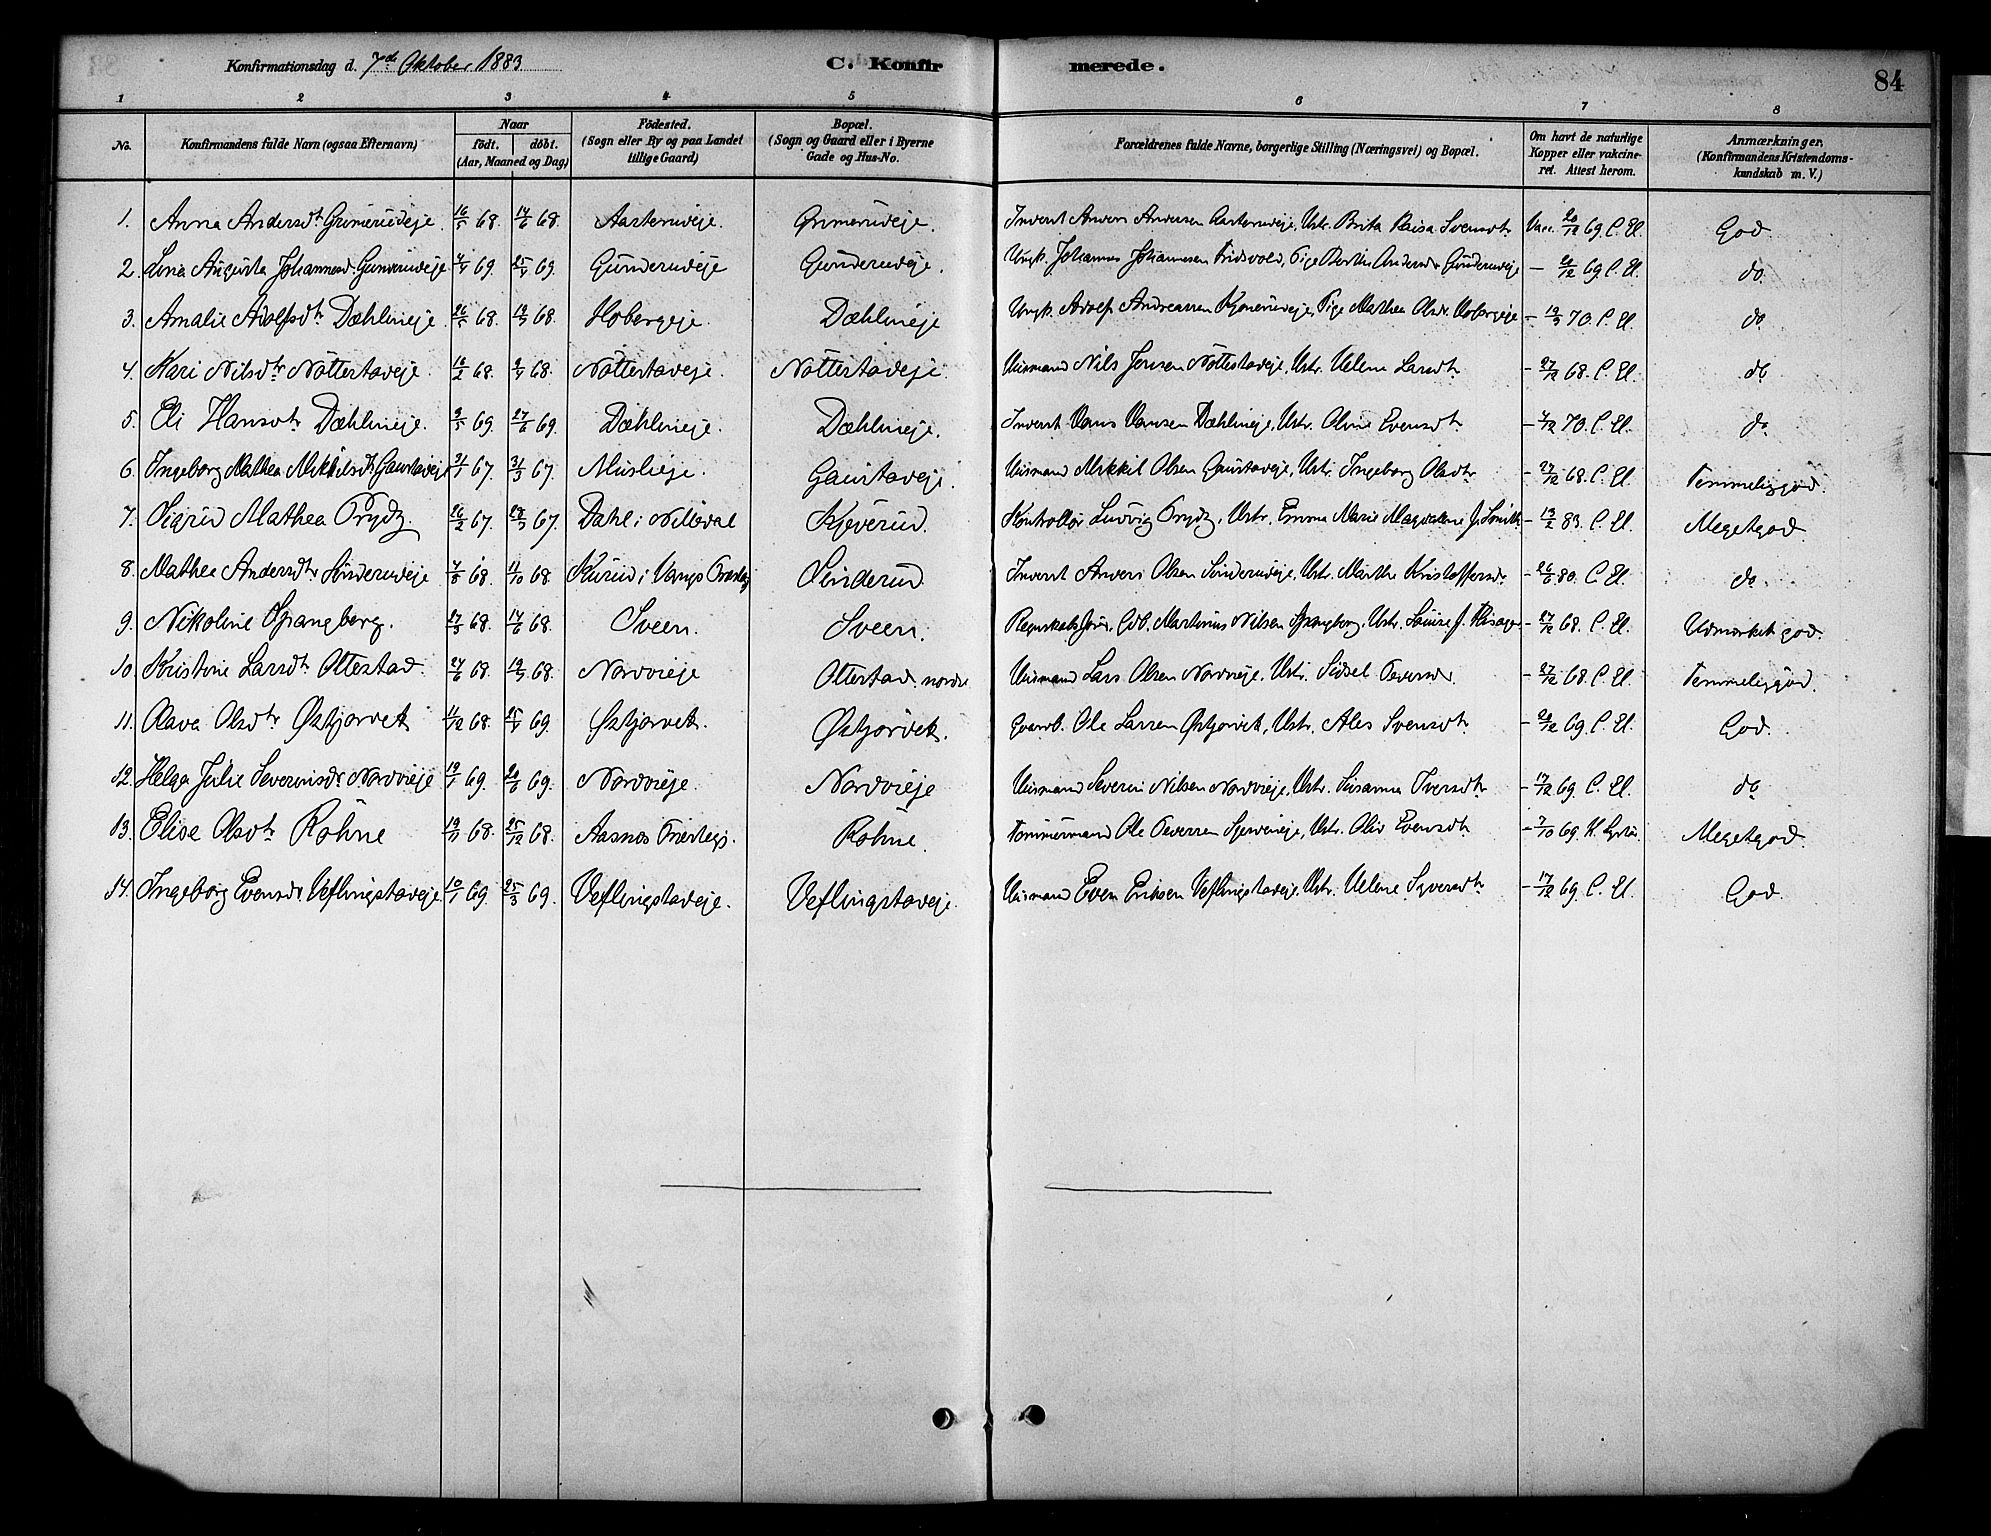 Konfirmationsdag d. 7de Oktober 1883 C. Konfir merede. 84
1 2 3 4 5 6 7 8
No. Konfirmandens fulde Navn (ogsaa Efternavn) Naar født. døbt. (Aar, Maaned og Dag) Fødested. (Sogn eller By og paa Landet tillige Gaard) Bopæl. (Sogn og Gaard eller i Byerne Gade og Hus-No. Forældrenes fulde Navne, borgerlige Stilling (Næringsvei) og Bopæl. Om havt de naturlige Kopper eller vakcineret. Attest herom. Anmærkninger. (Konfirmandens Kristendomskundskab m. V.)
1. Anna Andersdtr Grimerudeje. 16/5 68. 14/6 68. Aasterudeje. Grimerudeje. Inderst Anders Andersen Aasterudeje, Ustr. Brita Kaisa Svensdtr Vacc. 20/12 69 C. El. God.
2. Lina Augusta Johannesd. Gunderudeje 4/4 69. 25/4 69. Gunderudeje Gunderudeje. Ungk. Johannes Johannesen Eidsvold, Pige Berthe Andersdr Gunderudeje - 21/12 69 C. El. do.
3. Amalie Adolfsdtr Dæhlineje. 26/5 68. 12/7 68. Hobergeje. Dæhlineje Ungk. Adolf Andreassen Kjonerudeje, Pige Mathea Olsdr. Hobergeje - 12/3 70. C. El. do
4. Kari Nilsdtr Nöttestadeje. 16/2 68. 9/4 68. Nöttestadeje. Nöttestadeje. Husmand Nils Jensen Nöttestadeje, Ustr. Helene Larsdtr - 27/12 68. C. El. do
5. Eli Hansdtr Dæhlineje. 9/5 69. 27/6 69. Dæhlineje. Dæhlineje. Inderst Hans Hansen Dæhlineje, Ustr. Oline Evensdtr - 4/12 70. C. El. do
6. Ingeborg Mathea Mikkelsdtr Gaustadeje 31/1 67. 31/3 67. Muslieje. Gaustadeje. Husmand Mikkel Olsen Gaustadeje, Ustr. Ingeborg Olsdtr - 27/12 68. C. El. Temmeliggod.
7. Sigrid Mathea Prydz. 26/2 67. 28/3 67. Dahl i Nitedal Kjeverud. Kontrollör Ludvig Prydz, Ustr. Emma Marie Magdalene f. Smith - 13/2 83. C. El. Megetgod
8. Mathea Andersdtr Sinderudeje 7/8 68. 11/10 68. Kurud i Vangs Præstegj. Sinderud Inderst Anders Olsen Sinderudeje, Ustr. Marthe Kristoffersdr. - 26/6 80. C El. do.
9. Nikoline Spangberg. 27/3 68. 14/6 68. Sveen. Sveen. Regnskabsförer, Martinus Nilsen Spangberg, Ustr. Louise f. - 27/12 68. C. El. Udmærket god.
10. Kristine Larsdtr Ottestad. 24/6 68. 19/7 68. Nordvieje Ottestad nordre Husmand Lars Olsen Nordvieje, Ustr. Sidsel Pedersdr. - 27/12 68. C. El. Temmeliggod.
11. Olava Olsdtr Østjordet 11/12 68. 25/4 69. Østjordet. Østjordet. Gaardb. Ole Larsen Østjordet, Ustr. Ales Svensdtr - 28/12 69 C. El. God.
12. Helga Julie Severinsdr Nordvieje 19/4 69. 20/6 69. Nordvieje. Nordvieje Husmand Severin Nilsen Nordvieje, Ustr. Susanna Iversdtr - 17/12 69. C. El. do
13. Elise Olsdtr Röhne 19/11 68. 25/12 68. Aasnes Præstegj. Röhne. Tömmermand Ole Pedersen, Ustr. Oliv Evensdtr - 7/10 69. Megetgod
14. Ingeborg Evensdr Veflingstadeje 10/1 69. 25/3 69. Veflingstadeje. Veflingstadeje. Husmand Even Eriksen Veflingstadeje, Ustr. Helene Syversdtr - 17/12 69. C. El. God.